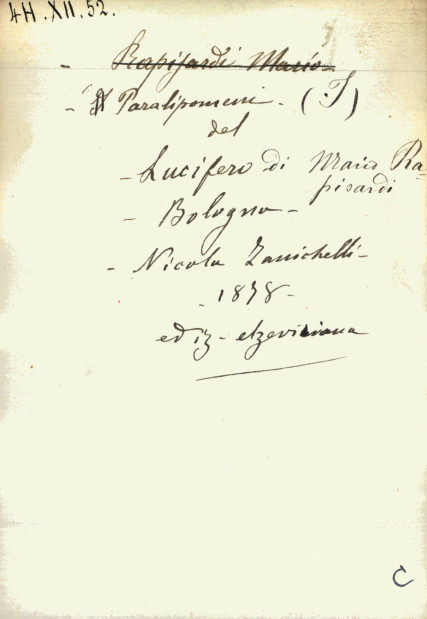 4H.XII.52.
- Rapisardi Mario
- I Paralipomeni - (I)
del
- Lucifero di Mario Ra=
pisardi
- Bologna -
- Nicola Zanichelli -
- 1878 -
ediz - elzeviriana
C